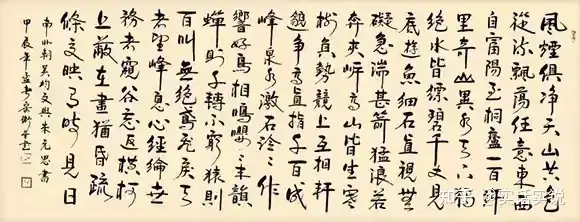 風煙俱净天山共色
從流飄蕩任意東西
自富陽至桐廬一百許
里奇山異水天下獨
絕水皆縹碧千丈見
底遊魚細石直視無
礙急湍甚箭猛浪若
奔夾岸高山皆生寒
樹負勢競上互相軒
邈争高直指千百成
峰泉水激石泠泠作
響好鳥相鳴嚶嚶成韻
蟬則千轉不窮猿則
百叫無絕鳶飛戾天
者望峰息心經綸世
務者窺谷忘返橫柯
上蔽在晝猶昏疏
條交映有時見日
南北朝吴均文與朱元思書
甲辰年孟春
知乎